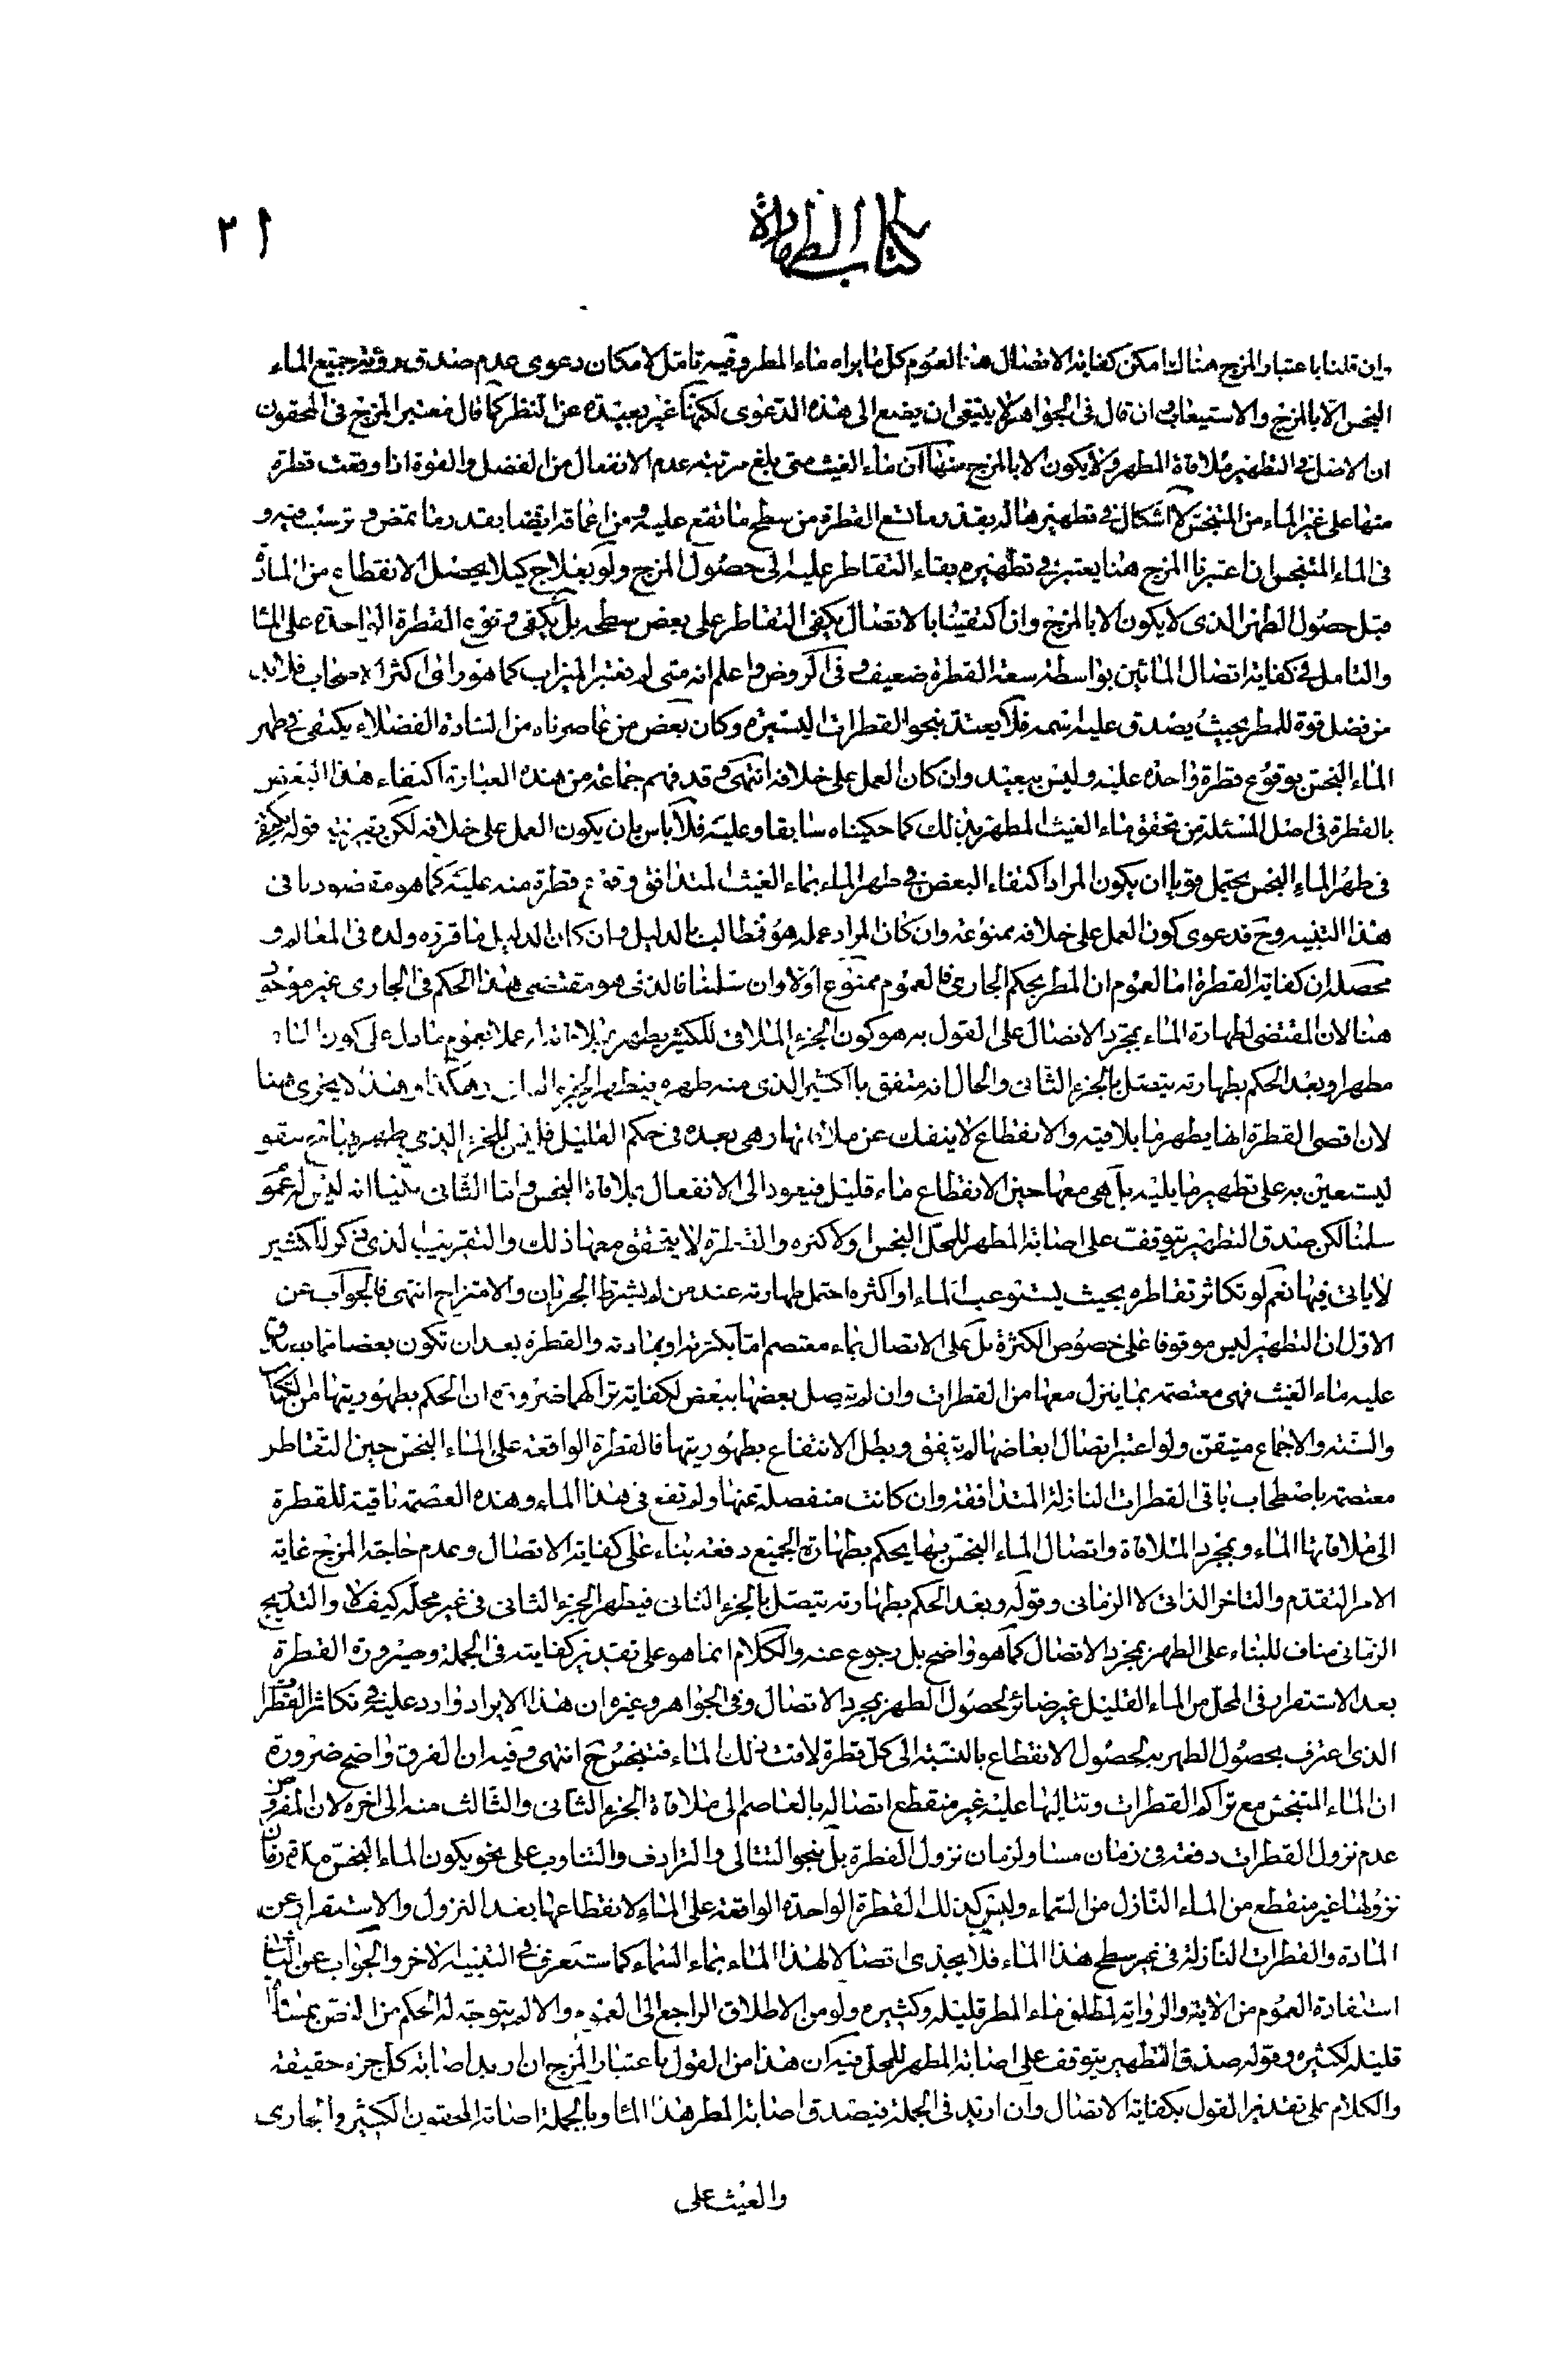 كتاب الطهارة
٢١
وان قلنا باعتبار المزج هنالك امكن كفاية الاتصال هنا لعموم كل ما يراه ماء المطر وفيه تامل لامكان دعوى عدم صدق رؤيته جميع الماء
النجس الا بالمزج والاستيعاب وان قال فى الجواهر لا ينبغى ان يصغى الى هذه الدعوى لكنها غير بعيدة عن النظر كما قال معتبر المزج فى المحقون
ان الاصل فى التطهير ملاقاة المطهر ولا يكون الا بالمزج منها ان ماء الغيث متى بلغ مرتبة عدم الانفعال من الفضل والقوة اذا وقعت قطرة
منها على غير الماء من المتنجس لا اشكال فى تطهيرها له بقدر ما تسع القطرة من سطح ما تقع عليه ومن اعماقه ايضا بقدر ما تمضى وترسب فيه و
فى الماء المتنجس ان اعتبرنا المزج هنا يعتبر فى تطهيره بقاء التقاطر عليه الى حصول المزج ولو بعلاج كيلا يحصل الانقطاع من المادة
قبل حصول الطهر الذى لا يكون الا بالمزج وان اكتفينا بالاتصال يكفى التقاطر على بعض سطحه بل يكفى وقوع القطرة الواحدة على الماء
والتامل فى كفاية اتصال المائين بواسطة سعة القطرة ضعيف وفى الروض واعلم انه متى لم نعتبر الميزاب كما هو راى اكثر الاصحاب فلا بد
من فضل قوة للمطر بحيث يصدق عليه اسمه فلا يعتد بنحو القطرات اليسيرة وكان بعض من عاصرناه من السادة الفضلاء يكتفى فى طهر
الماء النجس بوقوع قطرة واحدة عليه وليس ببعيد وان كان العمل على خلافه انتهى وقد فهم جماعة من هذه العبارة اكتفاء هذا البعض
بالقطرة فى اصل المسئلة من تحقق ماء الغيث المطهر بذلك كما حكيناه سابقا وعليه فلا باس بان يكون العمل على خلافه لكن بقرينة قوله يكتفى
فى طهر الماء النجس يحتمل قويا ان يكون المراد اكتفاء البعض فى طهر الماء بماء الغيث المتدافق وقوع قطرة منه عليه كما هو مقصودنا فى
هذا التنبيه وح فدعوى كون العمل على خلافه ممنوعة وان كان المراد عمله هو فنطالبه بالدليل وان كان الدليل ما قرره ولده فى المعالم و
محصله ان كفاية القطرة اما لعموم ان المطر بحكم الجارى فالعموم ممنوع اولا وان سلمنا فالذى هو مقتضى هذا الحكم فى الجارى غير موجود
هنا لان المقتضى لطهارة الماء بمجرد الاتصال على القول به هو كون الجزء الملاقى للكثير يطهر بملاقاته له عملا بعموم ما دل على كون الماء
مطهرا وبعد الحكم بطهارته يتصل بالجزء الثانى والحال انه متفق بالكثير الذى منه طهره فيطهر الجزء الثانى وهكذا وهذا لا يجرى ههنا
لان اقصى القطرة انها يطهر ما يلاقيه والانقطاع لا ينفك عن ملاقاتها وهى بعده فى حكم القليل فليس للجزء الذى طهر بها ما يتقوى
ليستعين به على تطهير ما يليه بل هى معها حين الانقطاع ماء قليل فيعود الى الانفعال بملاقاة النجس واما الثانى انه ليس له عموم
سلمنا لكن صدق التطهير يتوقف على اصابة المطهر للمحل النجس او لاكثره والقطرة لا يتحقق معها ذلك والتقريب الذى ذكر للكثير
لا ياتى فيها نعم لو تكاثر تقاطره بحيث يستوعب الماء او اكثره احتمل طهارته عند من لم يشترط الجريان والامتزاج انتهى فالجواب عن
الاول ان التطهير ليس موقوفا على خصوص الكثرة بل على الاتصال بماء معتصم اما بكثرته او بمادته والقطرة بعد ان تكون بعضا مما يصدق
عليه ماء الغيث فهى معتصمة بما ينزل معها من القطرات وان لم يتصل بعضها ببعض لكفاية تراكمها ضرورة ان الحكم بطهوريتها من الكتاب
والسنة والاجماع متيقن ولو اعتبر اتصال ابعاضها لم يتفق وبطل الانتفاع بطهوريتها فالقطرة الواقعة على الماء النجس حين التقاطر
معتصمة باصطحاب باقى القطرات النازلة المتدافقة وان كانت منفصلة عنها ولم تقع فى هذا الماء وهذه العصمة باقية للقطرة
الى ملاقاتها الماء وبمجرد الملاقاة واتصال الماء النجس بها يحكم بطهارة الجميع دفعة بناء على كفاية الاتصال وعدم حاجة المزج غاية
الامر التقدم والتاخر الذاتى لا الزمانى وقوله وبعد الحكم بطهارته يتصل بالجزء الثانى فيطهر الجزء الثانى فى غير محله كيف لا والتدريج
الزمانى مناف للبناء على الطهر بمجرد الاتصال كما هو واضح بل رجوع عنه والكلام انما هو على تقدير كفايته فى الجملة وصيرورة القطرة
بعد الاستقرار فى المحل من الماء القليل غير ضائر لحصول الطهر بمجرد الاتصال وفى الجواهر وغيره ان هذا الايراد وارد عليه فى تكاثر القطرات
الذى اعترف بحصول الطهر به لحصول الانقطاع بالنسبة الى كل قطرة لاقت ذلك الماء فتنجس ح انتهى وفيه ان الفرق واضح ضرورة
ان الماء المتنجس مع تراكم القطرات وتتاليها عليه غير منقطع اتصاله بالعاصم الى ملاقاة الجزء الثانى والثالث منه الى اخره لان المفروض
عدم نزول القطرات دفعة فى زمان مساو لزمان نزول القطرة بل بنحو التتالى والترادف والتناوب على نحو يكون الماء النجس مدة زمان
نزولها غير منقطع من الماء النازل من السماء وليس كذلك القطرة الواحدة الواقعة على الماء لانقطاعها بعد النزول والاستقرار عن
المادة والقطرات النازلة فى غير سطح هذا الماء فلا يجدى اتصالا لهذا الماء بماء السماء كما ستعرف فى التنبيه الاخر والجواب عن الثانى
استفادة العموم من الاية والرواية لمطلق ماء المطر قليله وكثيره ولو من الاطلاق الراجع الى العموم والا لم يتوجه له الحكم من النص بمساواة
قليله لكثيره وقوله صدق التطهير يتوقف على اصابة المطهر للمحل فيه ان هذا من القول باعتبار المزج ان اريد اصابة كل جزء حقيقة
والكلام على تقدير القول بكفاية الاتصال وان اريد فى الجملة فيصدق اصابة المطر هذا الماء وبالجملة اصابة المحقون الكثير والجارى
والغيث على